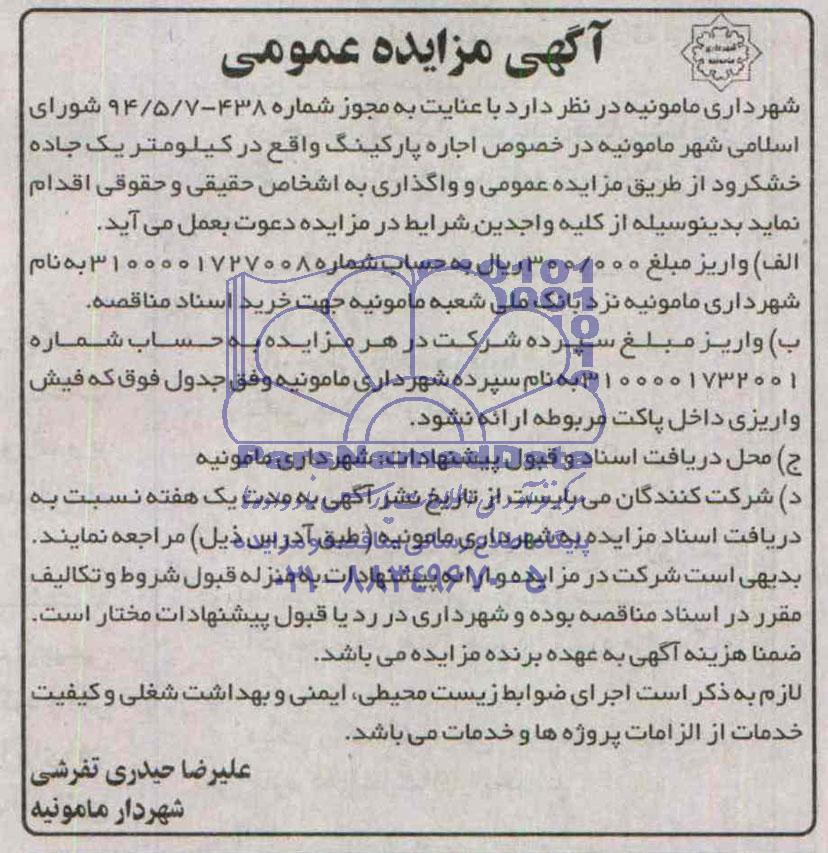 آگهی مزایده عمومی
شهرداری مامونیه
شهرداری مامونیه در نظر دارد با عنایت به مجوز شماره ۴۳۸-۹۴/۵/۷ شورای
اسلامی شهر مامونیه در خصوص اجاره پارکینگ واقع در کیلومتر یک جاده
خشکرود از طریق مزایده عمومی و واگذاری به اشخاص حقیقی و حقوقی اقدام
نماید بدینوسیله از کلیه واجدین شرایط در مزایده دعوت بعمل می آید.
الف) واریز مبلغ ۳۰۰/۰۰۰ ریال به حساب شماره ۳۱۰۰۰۰۱۷۲۷۰۰۸ به نام
شهرداری مامونیه نزد بانک ملی شعبه مامونیه جهت خرید اسناد مناقصه.
ب) واریز مبلغ سپرده شرکت در هر مزایده به حساب شماره
۳۱۰۰۰۰۱۷۳۲۰۰۱ به نام سپرده شهرداری مامونیه وفق جدول فوق که فیش
واریزی داخل پاکت مربوطه ارائه نشود.
ج) محل دریافت اسناد و قبول پیشنهادات: شهرداری مامونیه
د) شرکت کنندگان می بایست از تاریخ نشر آگهی به مدت یک هفته نسبت به
دریافت اسناد مزایده به شهرداری مامونیه (طبق آدرس ذیل) مراجعه نمایند.
بدیهی است شرکت در مزایده و ارائه پیشنهادات به منزله قبول شروط و تکالیف
مقرر در اسناد مناقصه بوده و شهرداری در رد یا قبول پیشنهادات مختار است.
ضمنا هزینه آگهی به عهده برنده مزایده می باشد.
لازم به ذکر است اجرای ضوابط زیست محیطی، ایمنی و بهداشت شغلی و کیفیت
خدمات از الزامات پروژه ها و خدمات می باشد.
علیرضا حیدری تفرشی
شهردار مامونیه
ParsNamadData
پایگاه اطلاع رسانی مناقصه و مزایده
۰۲۱-۸۸۳۴۹۶۷۰-۵